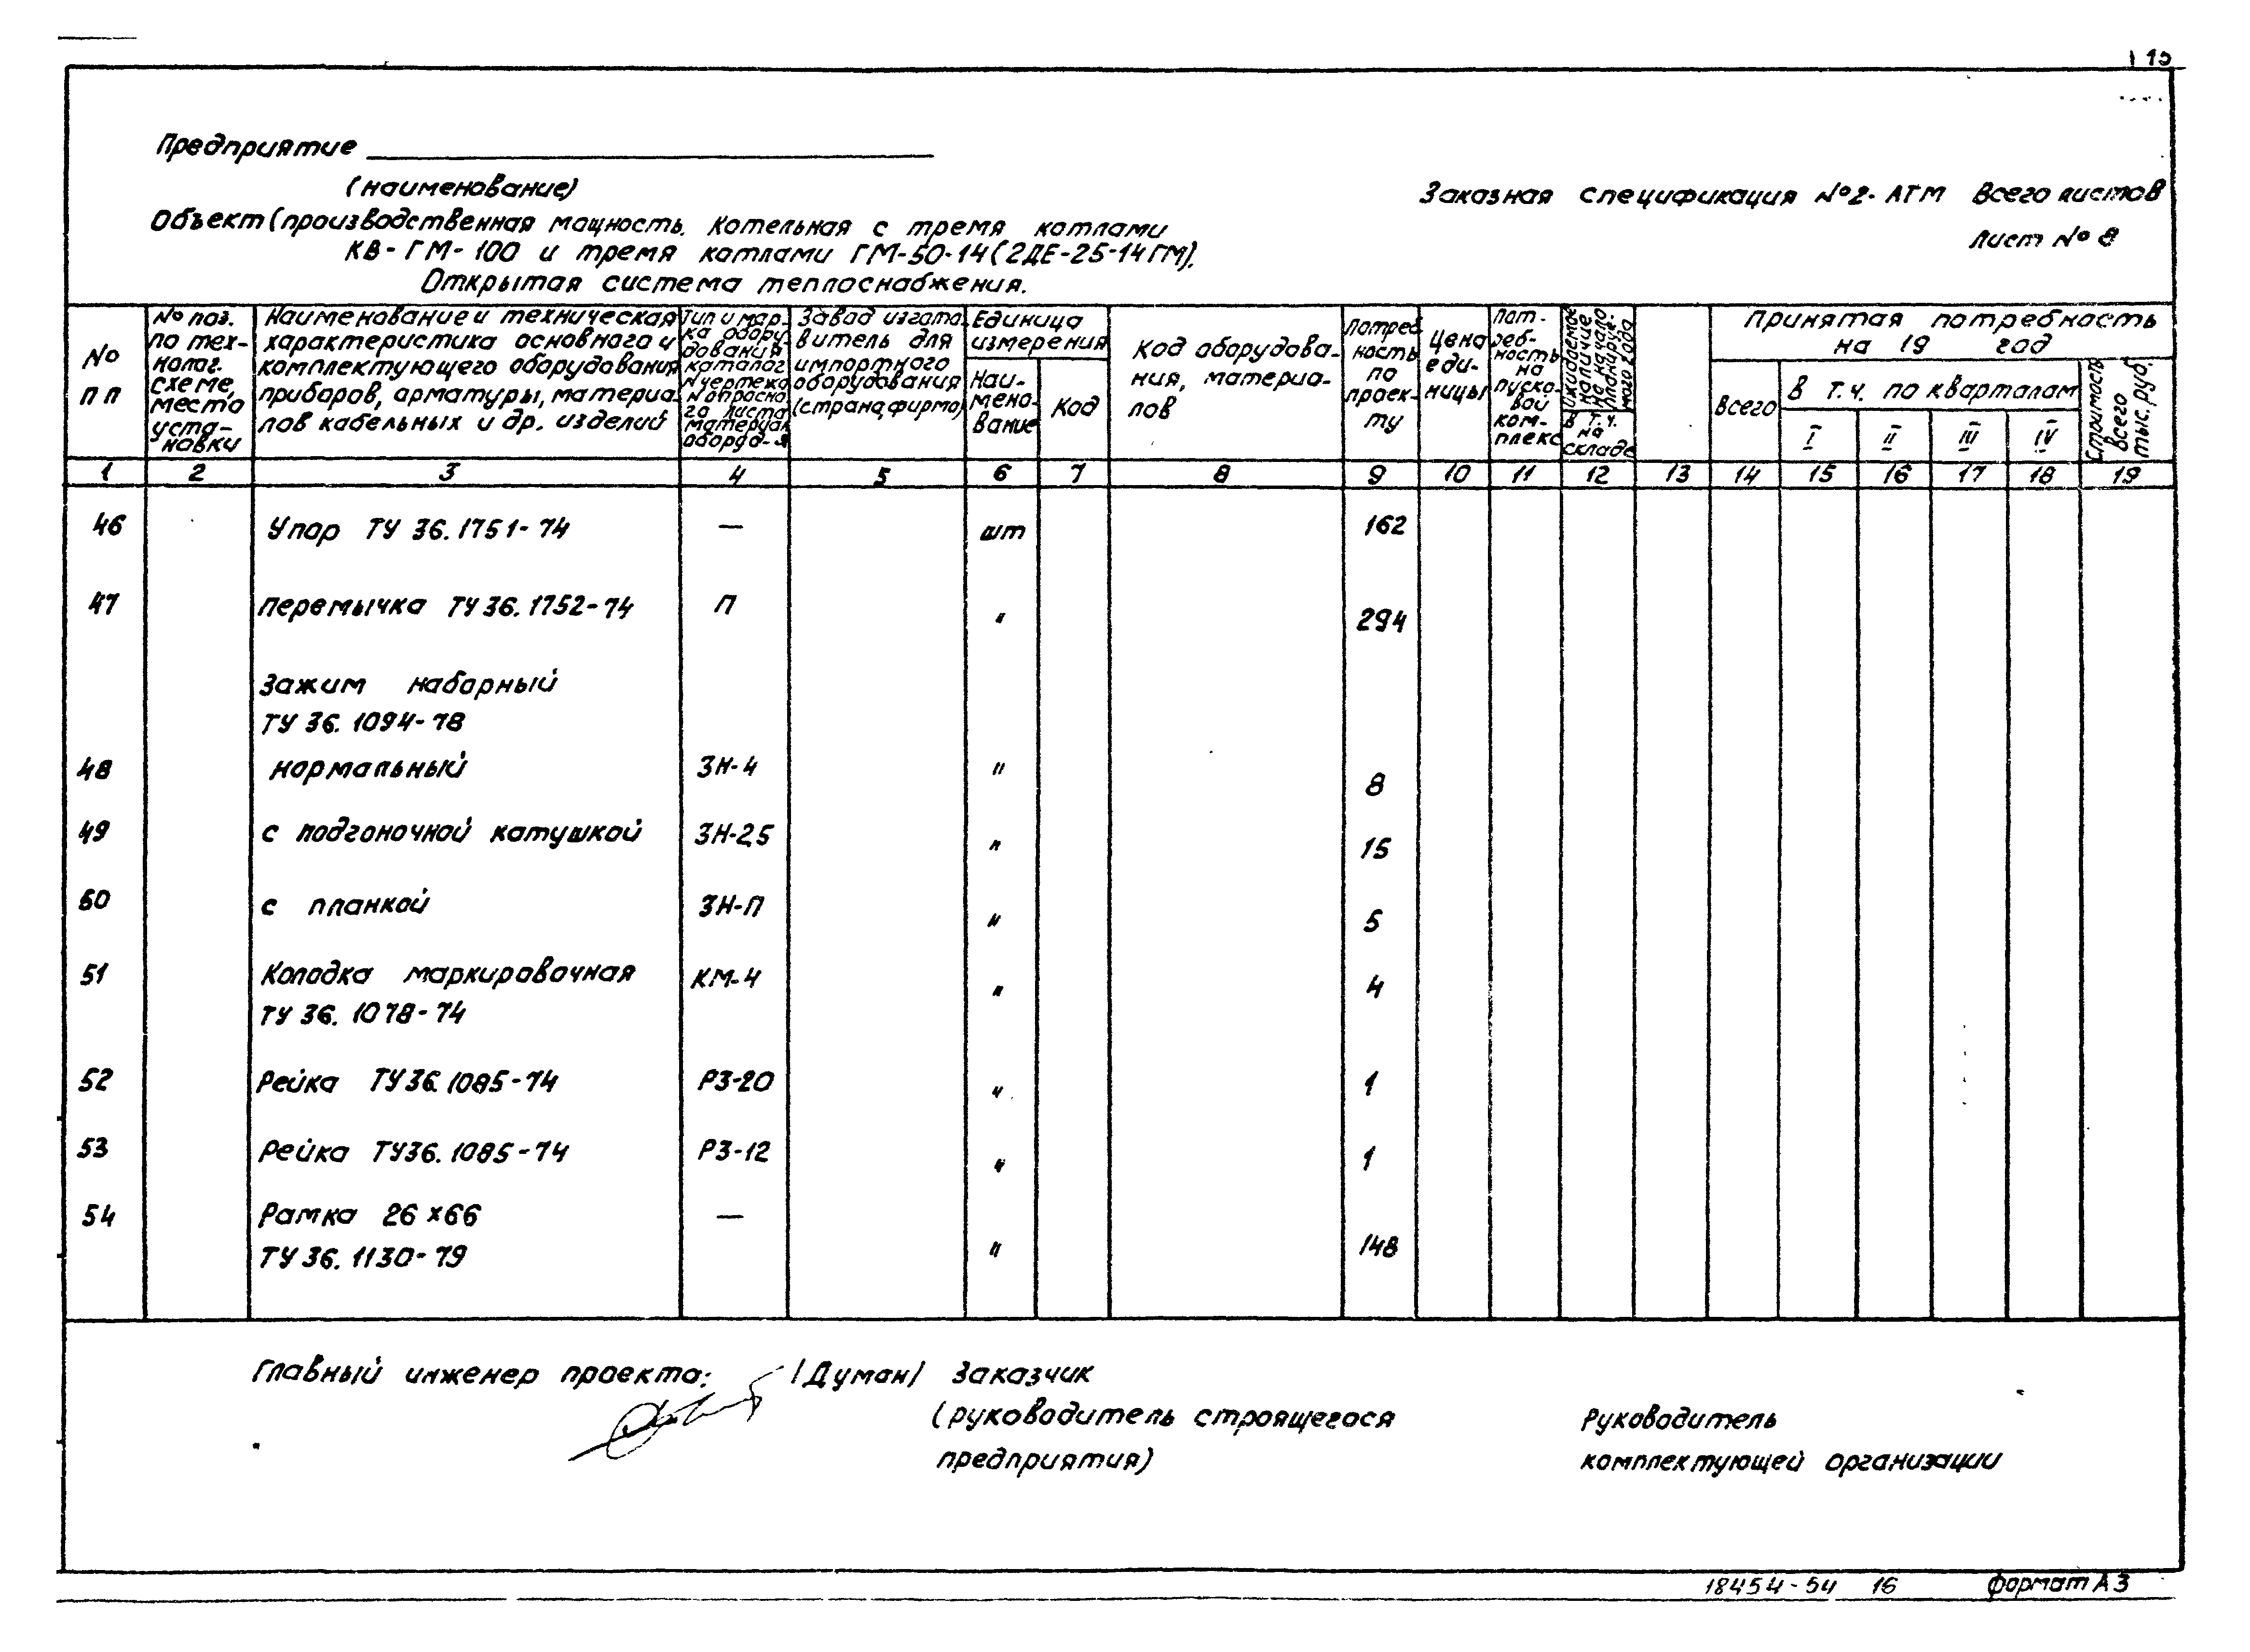 115
Предприятие
(наименование)
Заказная спецификация №2-АТМ Всего листов 8
Объект (производственная мощность. Котельная с тремя котлами
КВ-ГМ-100 и тремя котлами ГМ-50-14 (2ДЕ-25-14ГМ).
Лист № 8
Открытая система теплоснабжения.
№
пп
№ поз.
по тех-
нолог.
схеме,
место
уста-
новки
Наименование и техническая
характеристика основного и
комплектующего оборудования
приборов, арматуры, материа-
лов кабельных и др. изделий
Тип и мар-
ка обору-
дования
каталог
№ чертежа
№ опросно-
го листа
материал
оборуд-я
Завод изгото-
витель для
импортного
оборудования
(страна, фирма)
Единица
измерения
Наи-
мено-
вание
Код
Код оборудова-
ния, материа-
лов
Потреб
ность
по
проек-
ту
Цена
еди-
ницы
Пот-
реб-
ность
на
пуско-
вой
ком-
плекс
Ожидаемое
наличие
на начало
планируе-
мого года
в т.ч.
на
складе
Принятая потребность
на 19 год
всего
в т.ч. по кварталам
I II III IV
Стоимость
всего
тыс. руб.
1 2 3 4 5 6 7 8 9 10 11 12 13 14 15 16 17 18 19
46 Упор ТУ 36.1751-74 — шт 162
47 Перемычка ТУ 36.1752-74 П " 294
Зажим наборный
ТУ 36.1094-78
48 нормальный ЗН-4 " 8
49 с подгоночной катушкой ЗН-2,5 " 15
50 с планкой ЗН-П " 5
51 Колодка маркировочная КМ-4 " 4
ТУ 36.1078-74
52 Рейка ТУ 36.1085-74 РЗ-20 " 1
53 Рейка ТУ36.1085-74 РЗ-12 " 1
54 Рамка 26×66 —
ТУ 36.1130-79 " 148
Главный инженер проекта: /Думан/ Заказчик
(руководитель строящегося
предприятия)
Руководитель
комплектующей организации
18454-54 16 формат А3